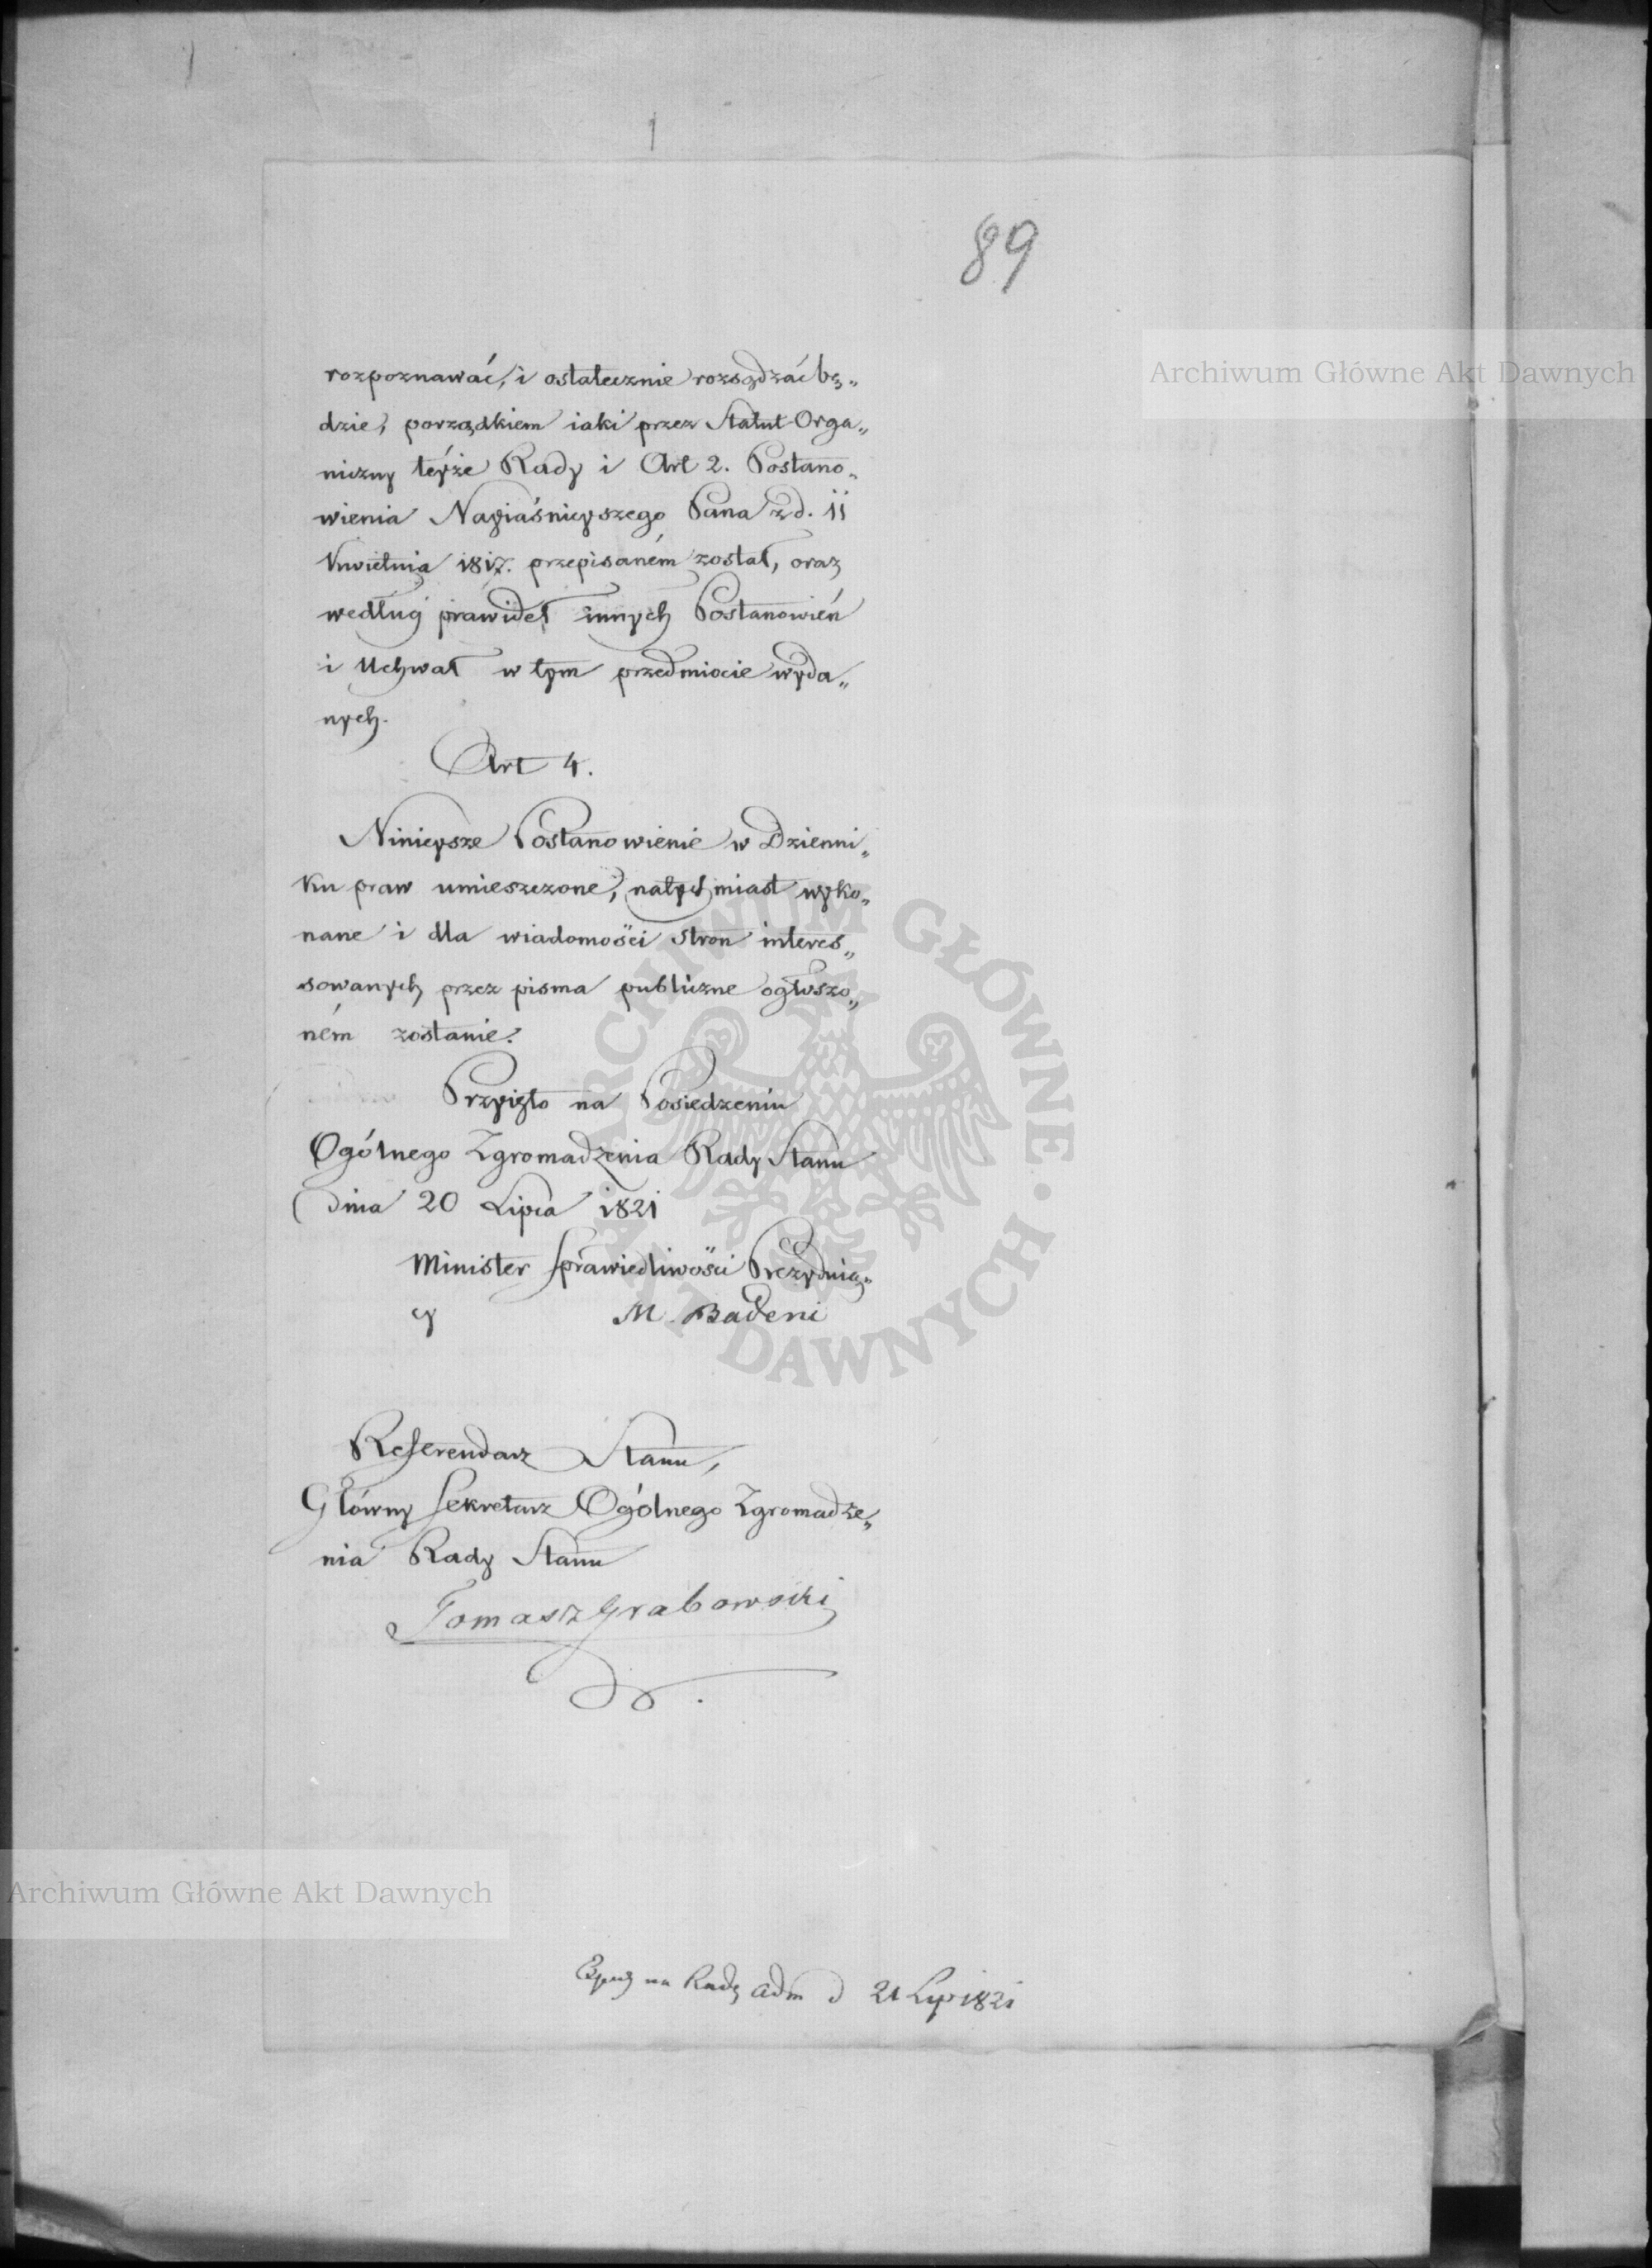 89
rozpoznawać, i ostatecznie rozsądzać bę„
dzie, porządkiem iaki przez Statut Orga„
niczny teyże Rady i Art 2. Postano„
wienia Nayiaśnieyszego Pana z d. 11
Kwietnia 1817. przepisaném został, oraz
według prawideł innych Postanowień
i Uchwał w tym przedmiocie wyda„
nych.
Art 4.
Ninieysze Postanowienie w Dzienni„
ku praw umieszczone, natychmiast wyko„
nane i dla wiadomości stron interes„
sowanych przez pisma publiczne ogłoszo„
ném zostanie.
Przyięto na Posiedzeniu
Ogólnego Zgromadzenia Rady Stanu
dnia 20 Lipca 1821
Minister Sprawiedliwości Prezyduią„
cy M. Badeni
Referendarz Stanu,
Główny Sekretarz Ogólnego Zgromadze„
nia Rady Stanu
Tomasz Grabowski
na Radę Adm d 21 Lip 1821
Archiwum Główne Akt Dawnych
Archiwum Główne Akt Dawnych
ARCHIWUM GŁÓWNE AKT DAWNYCH